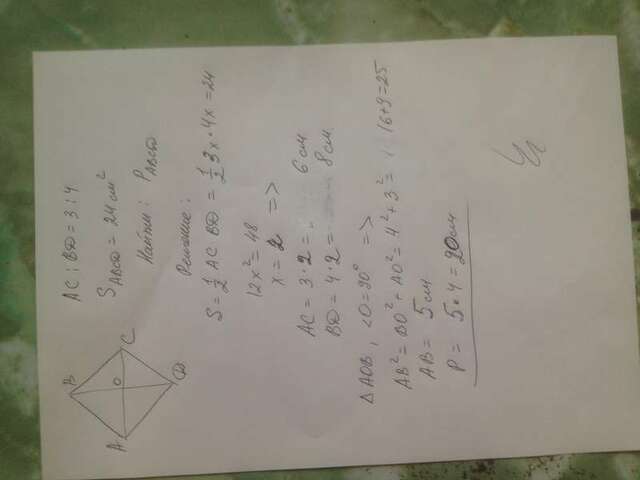 B
A
O
C
D
AC : BD = 3 : 4
S ABCD = 24 см²
Найти : P ABCD
Решение :
S = 1/2 AC BD = 1/2 3x · 4x = 24
12x² = 48
x = 2 =>
AC = 3 · 2 = 6 см
BD = 4 · 2 = 8 см
Δ AOB, ∠O = 90° =>
AB² = BO² + AO² = 4² + 3² = 16 + 9 = 25
AB = 5 см
P = 5 · 4 = 20 см